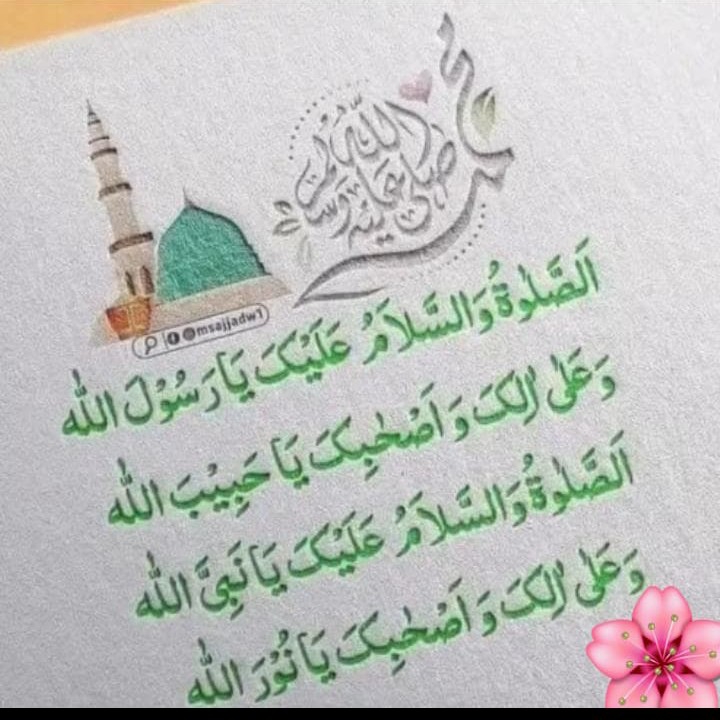 محمد
صلى الله عليه وسلم
@msajjadw1
اَلصَّلٰوةُ وَالسَّلَامُ عَلَيْكَ يَا رَسُوْلَ اللّٰه
وَعَلٰى اٰلِكَ وَ اَصْحٰبِكَ يَا حَبِيْبَ اللّٰه
اَلصَّلٰوةُ وَالسَّلَامُ عَلَيْكَ يَا نَبِىَّ اللّٰه
وَعَلٰى اٰلِكَ وَ اَصْحٰبِكَ يَا نُوْرَ اللّٰه